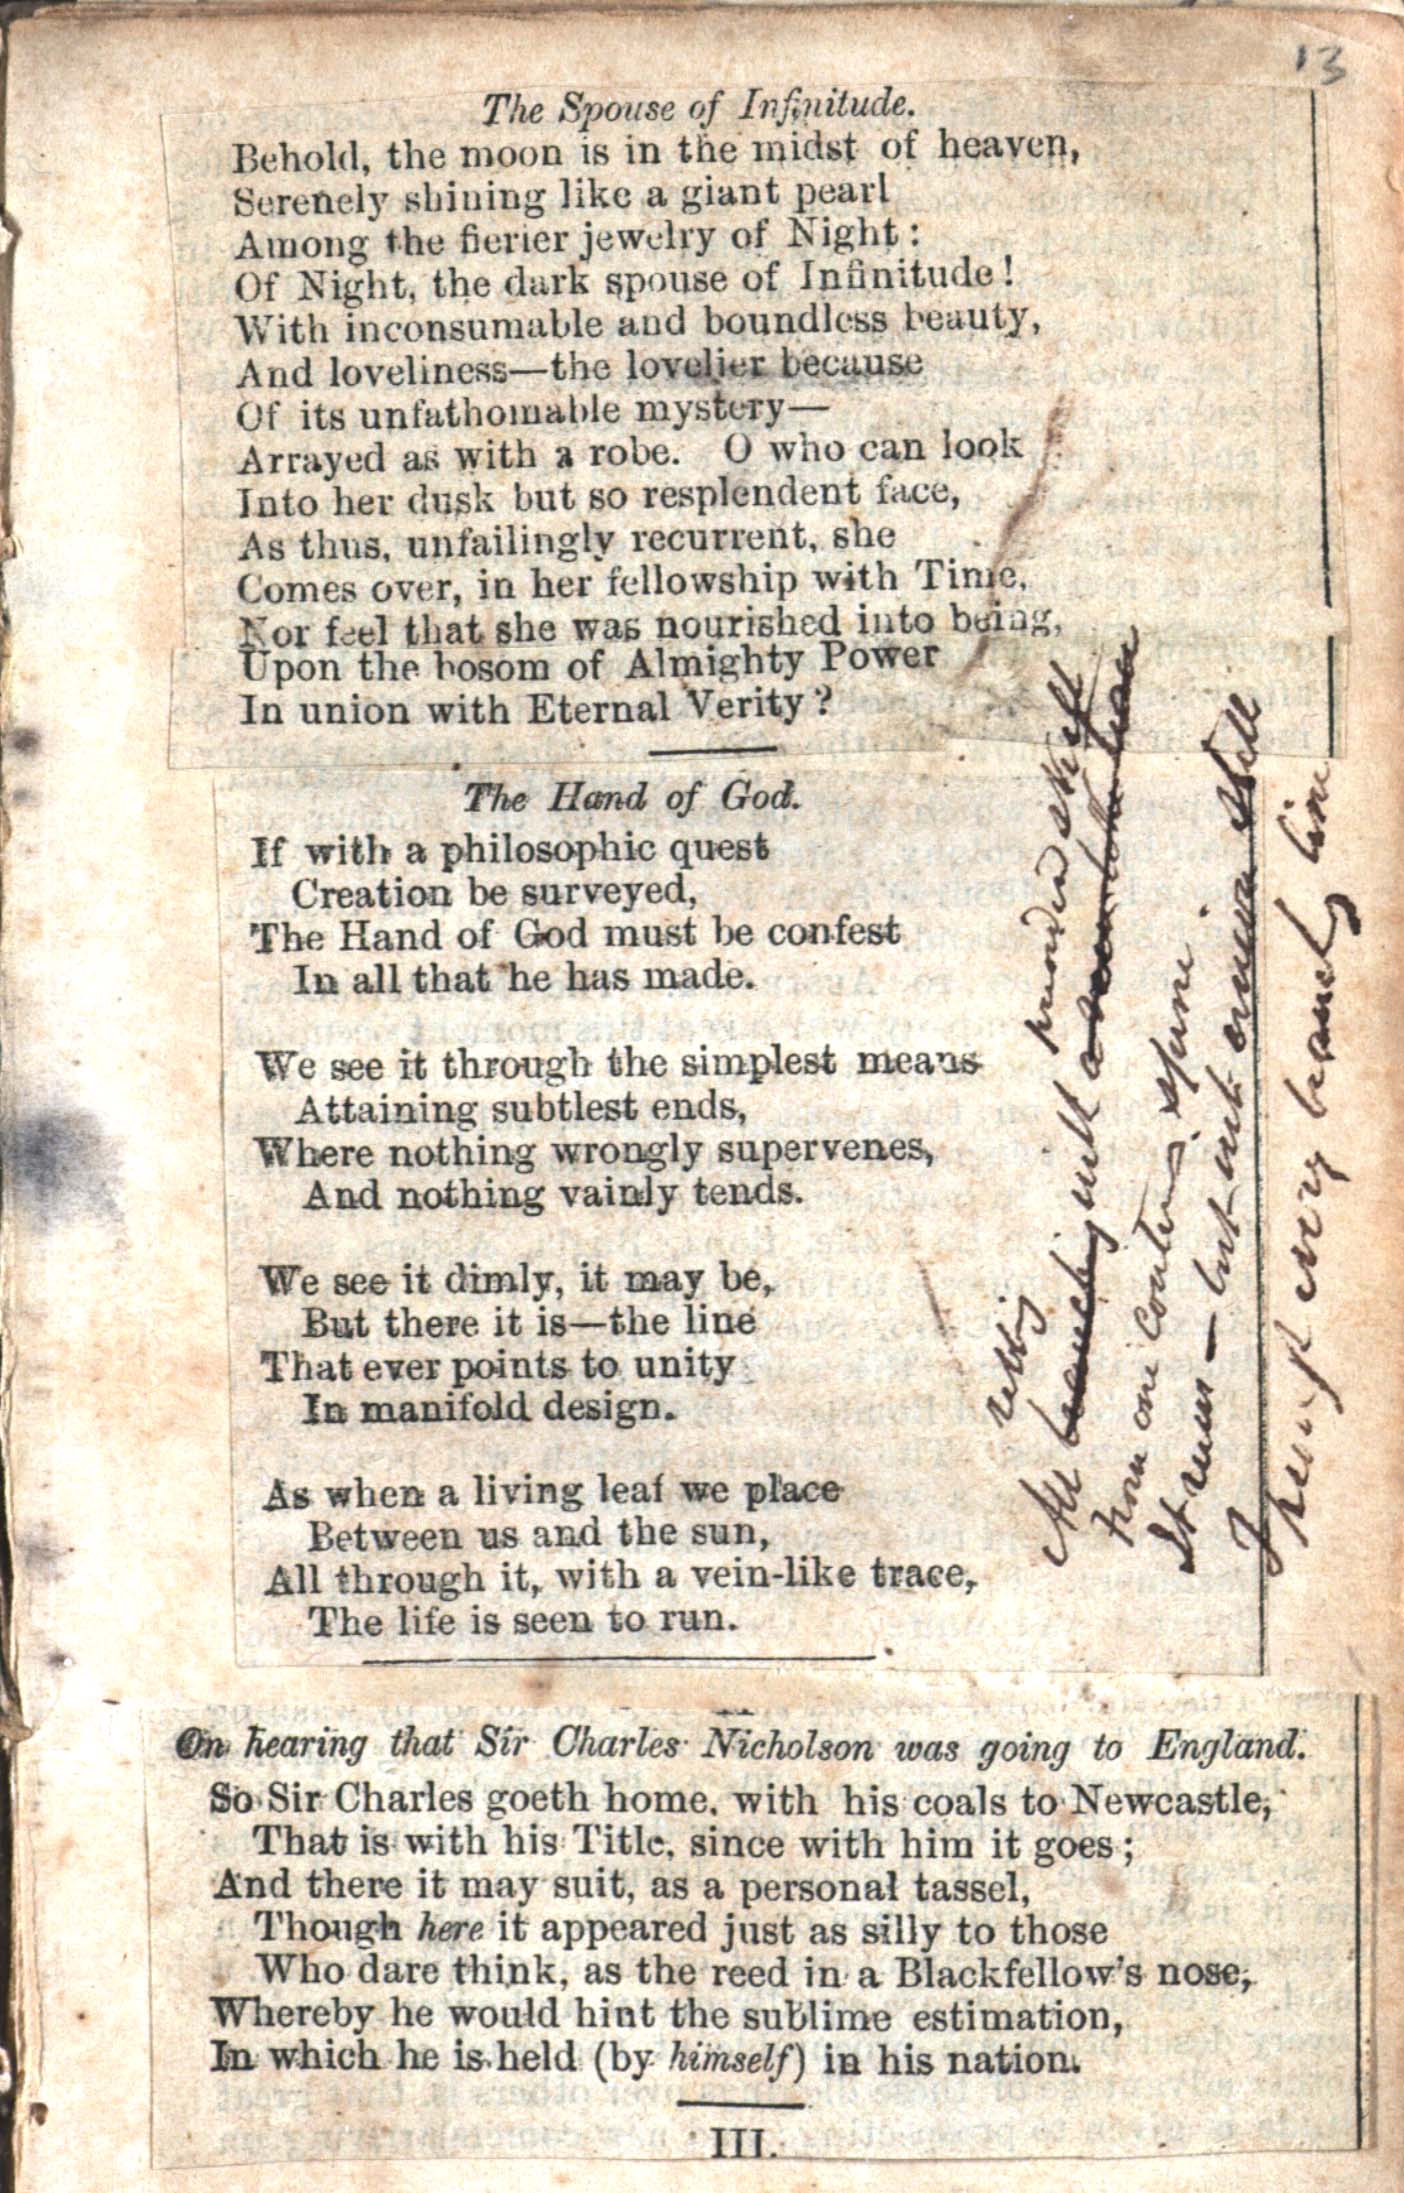 13
The Spouse of Infinitude.
Behold, the moon is in the midst of heaven,
Serenely shining like a giant pearl
Among the fierier jewelry of Night:
Of Night, the dark spouse of Infinitude!
With inconsumable and boundless beauty,
And loveliness—the lovelier because
Of its unfathomable mystery—
Arrayed as with a robe. O who can look
Into her dusk but so resplendent face,
As thus, unfailingly recurrent, she
Comes over, in her fellowship with Time,
Nor feel that she was nourished into being,
Upon the bosom of Almighty Power
In union with Eternal Verity?
The Hand of God.
If with a philosophic quest
Creation be surveyed,
The Hand of God must be confest
In all that he has made.
We see it through the simplest means
Attaining subtlest ends,
Where nothing wrongly supervenes,
And nothing vainly tends.
We see it dimly, it may be,
But there it is—the line
That ever points to unity
In manifold design.
As when a living leaf we place
Between us and the sun,
All through it, with a vein-like trace,
The life is seen to run.
All branching with a
From one
It runs — but
every branchy line
On hearing that Sir Charles Nicholson was going to England.
So Sir Charles goeth home, with his coals to Newcastle,
That is with his Title, since with him it goes;
And there it may suit, as a personal tassel,
Though here it appeared just as silly to those
Who dare think, as the reed in a Blackfellow's nose,
Whereby he would hint the sublime estimation,
In which he is held (by himself) in his nation.
III.